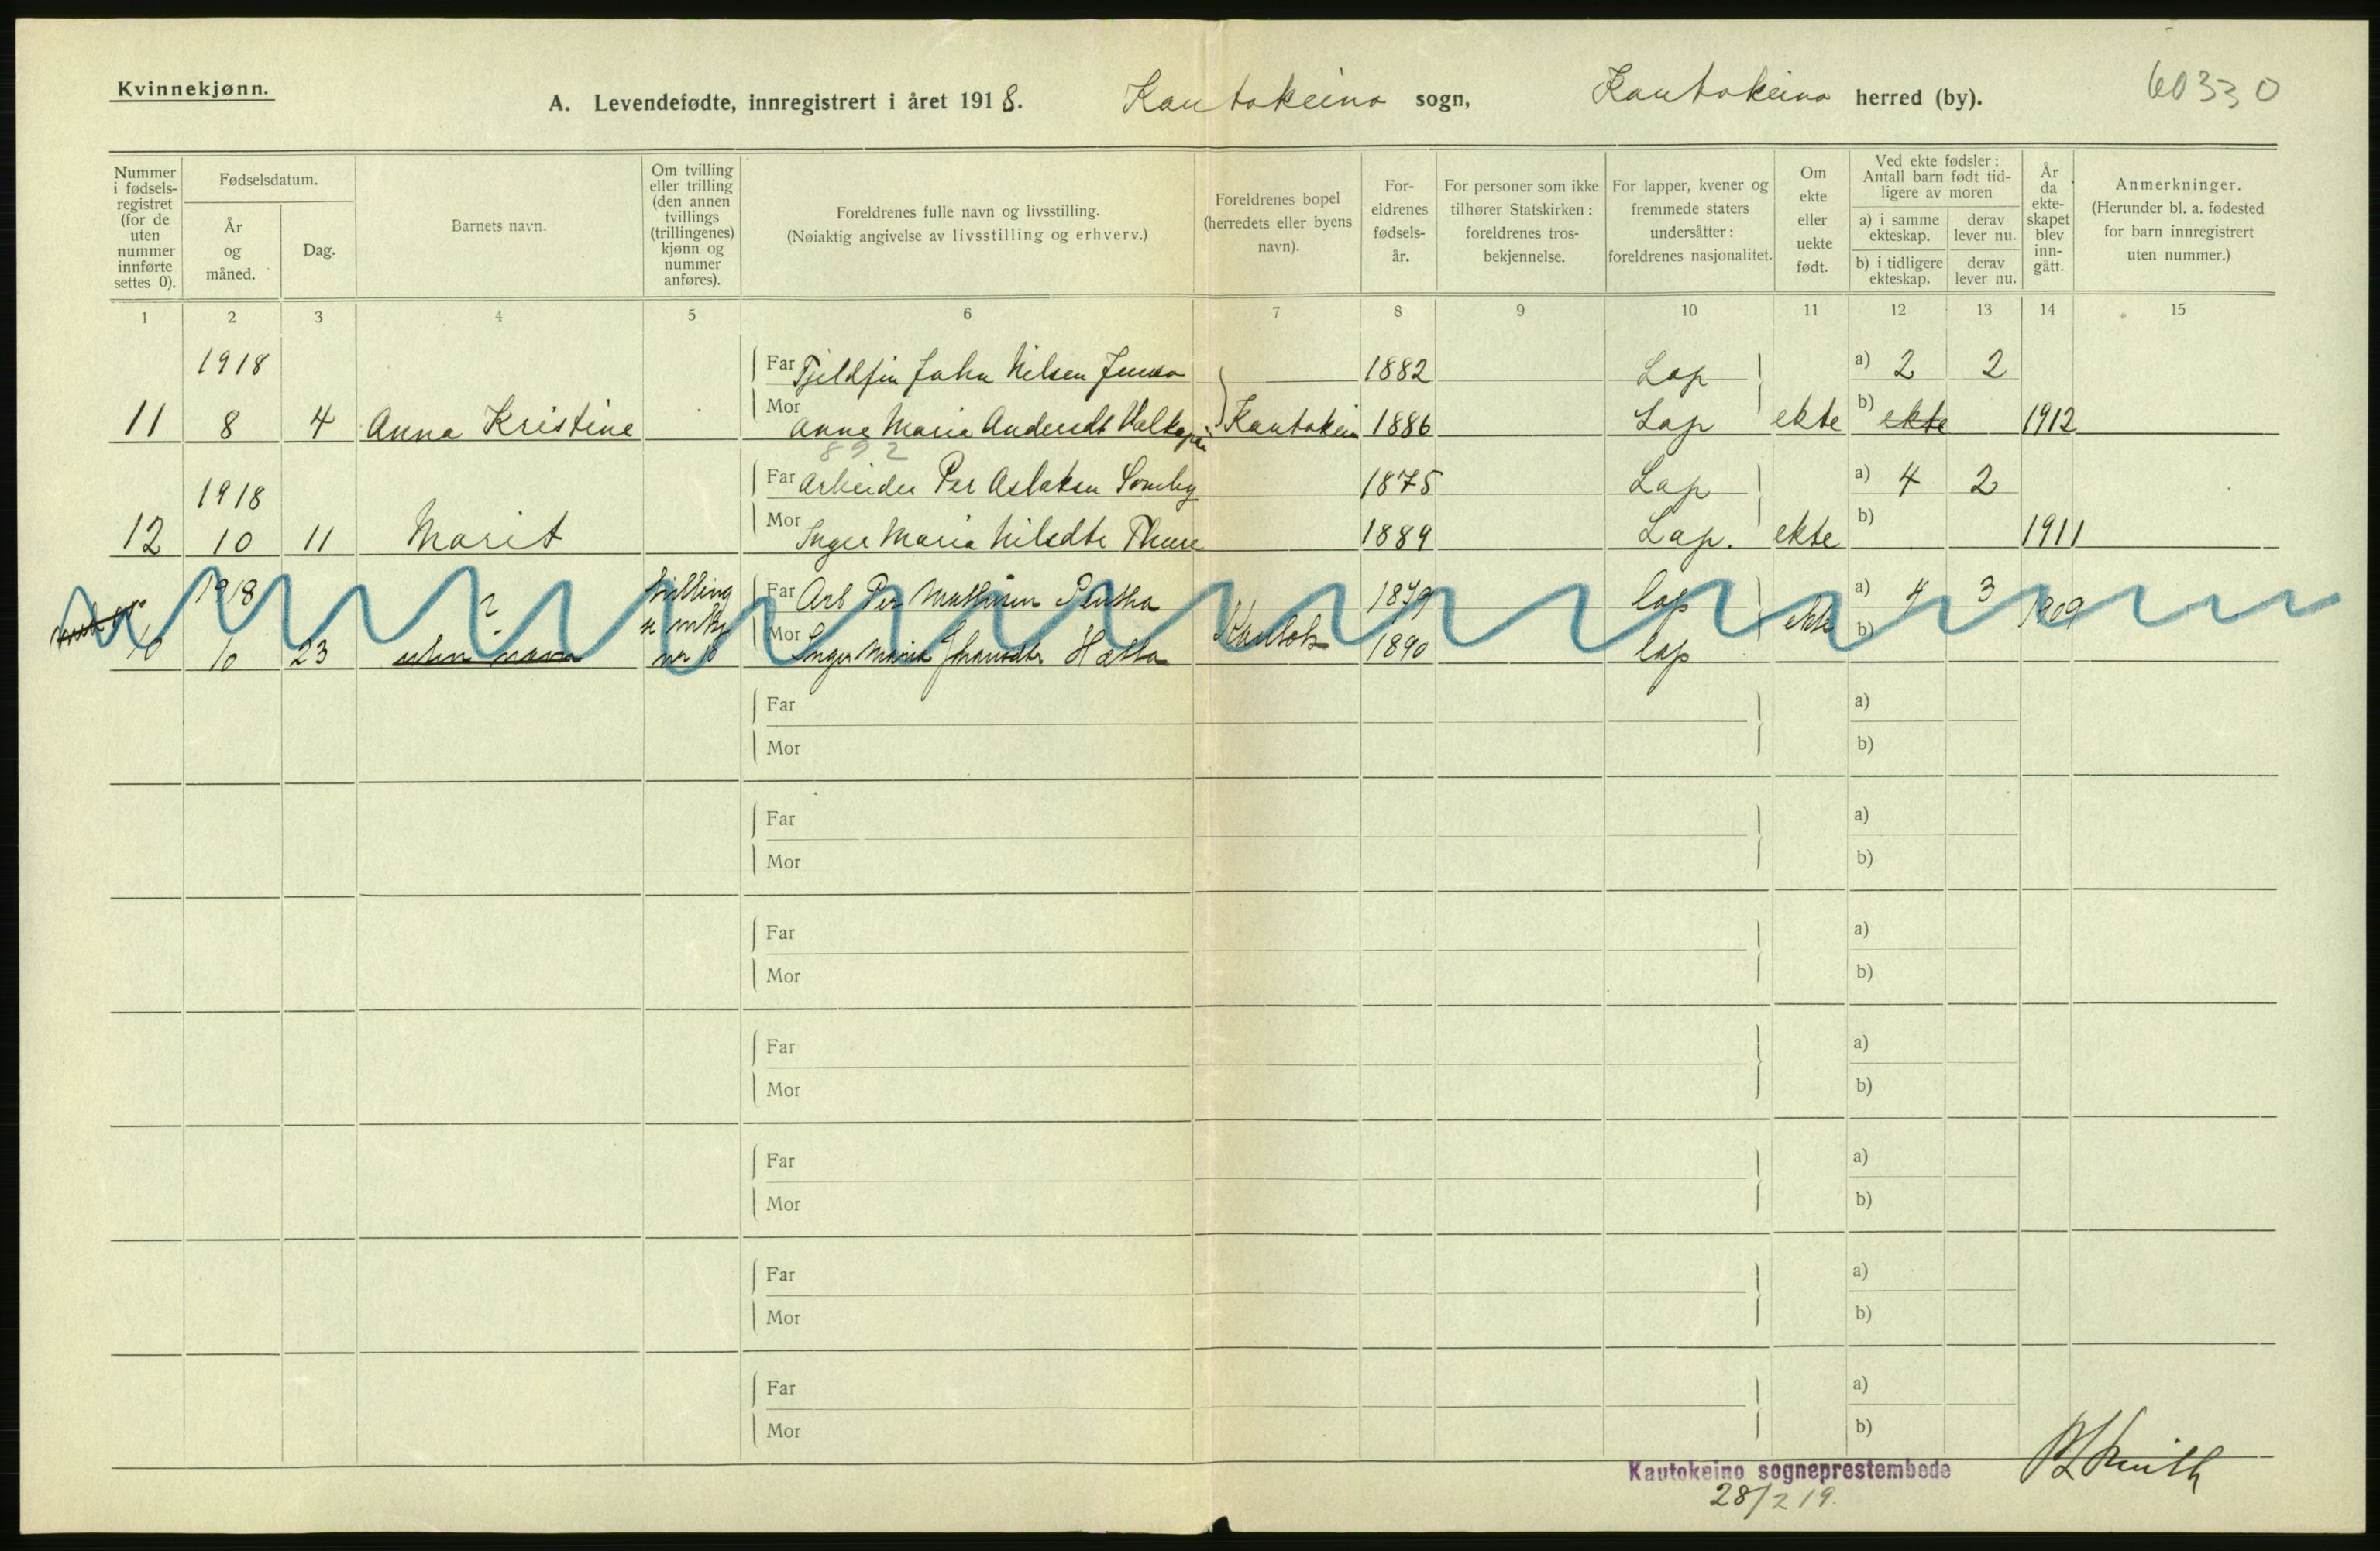 Kvinnekjønn.
A. Levendefødte, innregistrert i året 1918. Kautokeino sogn, Kautokeino herred (by). 60330
Nummer i fødsels-registret (for de uten nummer innførte settes 0).
Fødselsdatum.
År og måned.
Dag.
Barnets navn.
Om tvilling eller trilling (den annen tvillings (trillingenes) kjønn og nummer anføres).
Foreldrenes fulle navn og livsstilling.
(Nøiaktig angivelse av livsstilling og erhverv.)
Foreldrenes bopel (herredets eller byens navn).
For-eldrenes fødsels-år.
For personer som ikke tilhører Statskirken: foreldrenes tros-bekjennelse.
For lapper, kvener og fremmede staters undersåtter: foreldrenes nasjonalitet.
Om ekte eller uekte født.
Ved ekte fødsler: Antall barn født tid-ligere av moren
a) i samme ekteskap.
derav lever nu.
b) i tidligere ekteskap.
derav lever nu.
År da ekte-skapet blev inn-gått.
Anmerkninger.
(Herunder bl. a. fødested for barn innregistrert uten nummer.)
1 2 3 4 5 6 7 8 9 10 11 12 13 14 15
1918 Far Fjeldfin John Nilsen 1882 Lap a) 2 2
11 8 4 Anna Kristine Mor Anne Maria Kautokein 1886 Lap ekte b) ekte 1912
892
1918 Far Arbeider Per Aslaksen Somby 1875 Lap a) 4 2
12 10 11 Marit Mor Inger Maria Nilsdtr Thure 1889 Lap. ekte b) 1911
1918 ? tvilling Far Arb Per Mathisen 1879 lap a) 4 3
10 10 23 uten navn nr 10 Mor Inger Maria Hætta Kautok 1890 lap ekte b) 1909
Far a)
Mor b)
Far a)
Mor b)
Far a)
Mor b)
Far a)
Mor b)
Far a)
Mor b)
Far a)
Mor b)
Far a)
Mor b)
Kautokeino sogneprestembede
28/2 19.